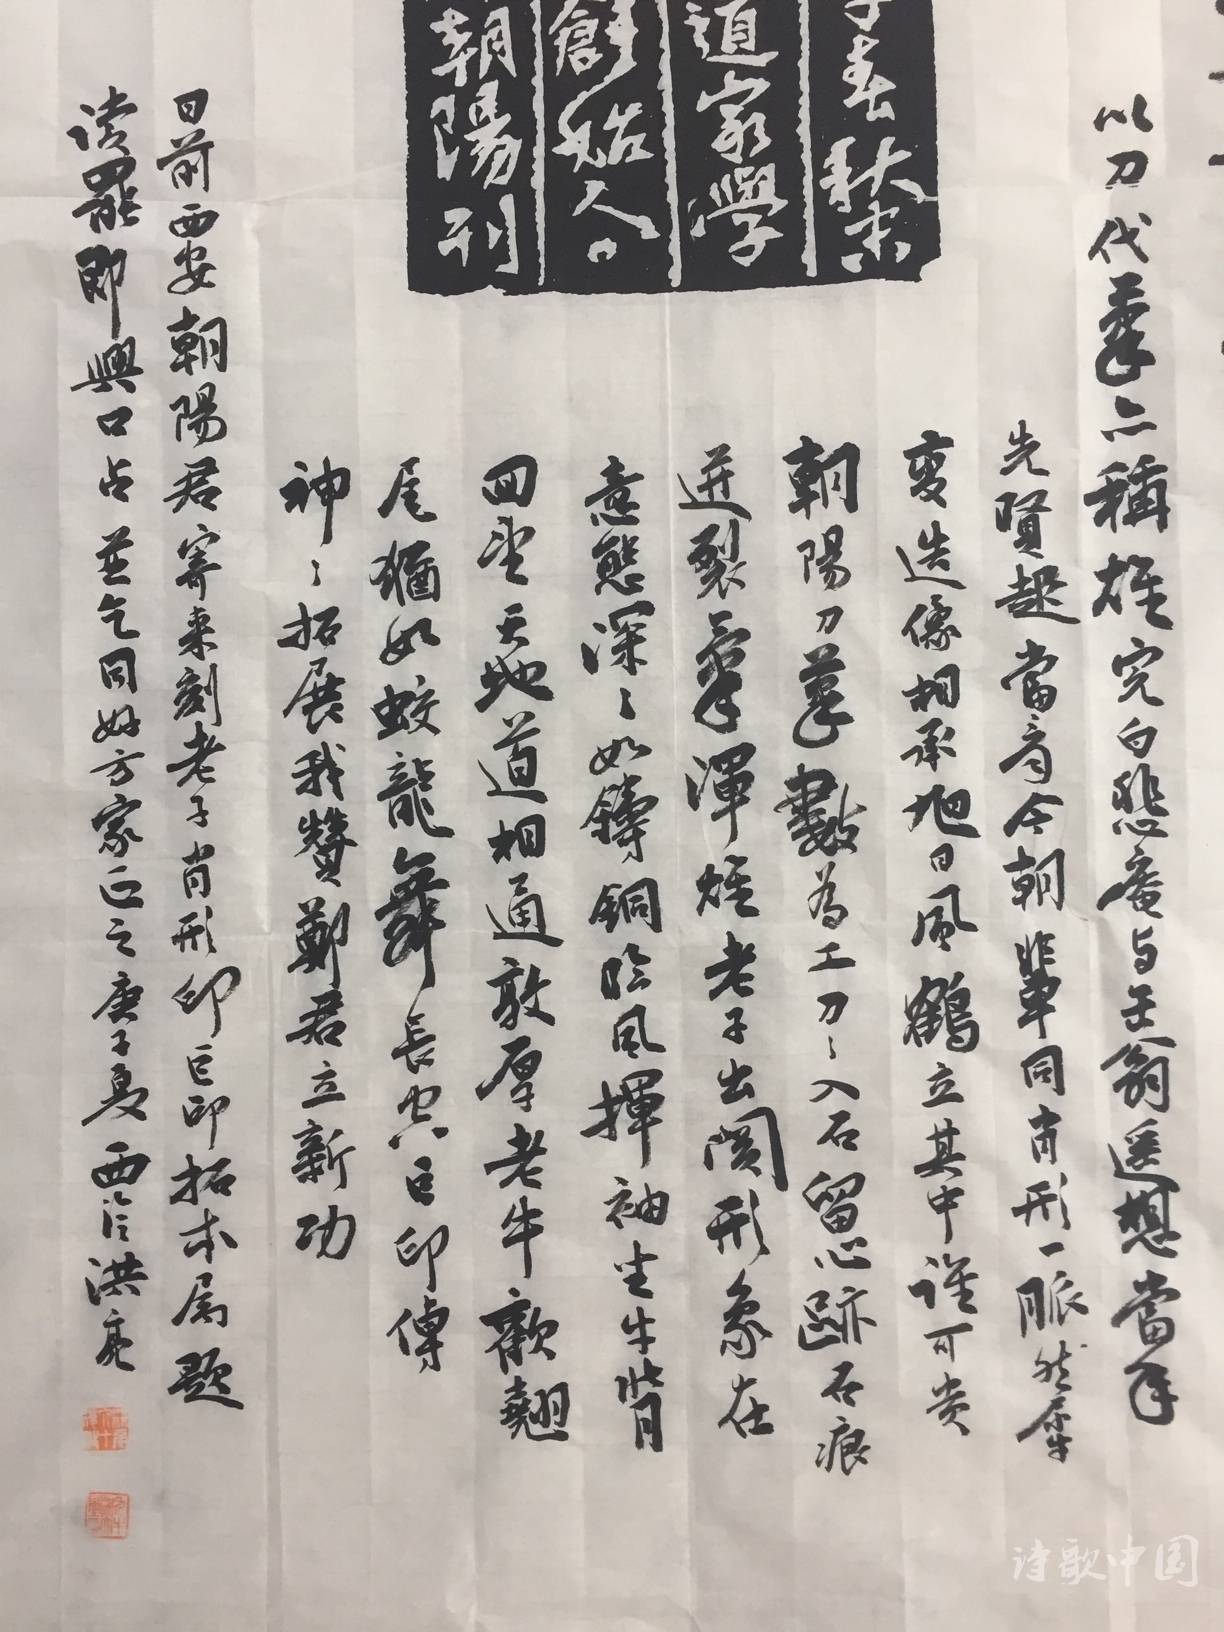 春秋末
道家學
創始人
朝陽刊
以刀代筆亦稱雄完白悲庵与缶翁遥想當年
先賢趣當看今朝輩同肖形一脈然犀
變造像相承旭日風鶴立其中誰可贵
朝陽刀筆數為工刀刀入石留心跡石痕
迸裂氣渾雄老子出関形象在
意態深深如鑄銅臨風揮袖坐牛背
回望天地道相通敦厚老牛歡翹
尾猶如蛟龍舞長空巨印傳
神神拓展我贊鄭君立新功
日前西安朝陽君寄来刻老子肖形印巨印拓本属題
读罷即興口占並乞同好方家正之庚子夏西泠洪亮
诗歌中国